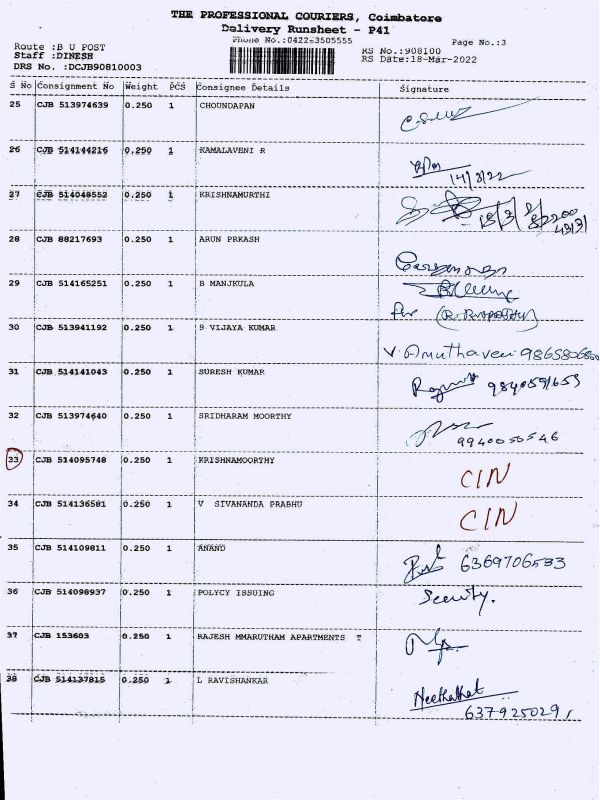 THE PROFESSIONAL COURIERS, Coimbatore
Delivery Runsheet - P41
Phone No.:0422-3505555
Page No.:3
Route :B U POST
RS No.:908100
Staff :DINESH
RS Date:18-Mar-2022
DRS No. :DCJB90810003
S No Consignment No Weight PCS Consignee Details Signature
25 CJB 513974639 0.250 1 CHOUNDAPAN
26 CJB 514144216 0.250 1 KAMALAVENI R
14/3/22
27 CJB 514048552 0.250 1 KRISHNAMURTHI
28 CJB 88217693 0.250 1 ARUN PRKASH
29 CJB 514165251 0.250 1 B MANJKULA
30 CJB 513941192 0.250 1 S VIJAYA KUMAR
V. Amuthaveni
31 CJB 514141043 0.250 1 SURESH KUMAR
32 CJB 513974640 0.250 1 SRIDHARAM MOORTHY
9940050546
33 CJB 514095748 0.250 1 KRISHNAMOORTHY CIN
34 CJB 514136581 0.250 1 V SIVANANDA PRABHU CIN
35 CJB 514109811 0.250 1 ANAND 6369706533
36 CJB 514098937 0.250 1 POLYCY ISSUING Security.
37 CJB 153603 0.250 1 RAJESH MMARUTHAM APARTMENTS T
38 CJB 514137815 0.250 1 L RAVISHANKAR